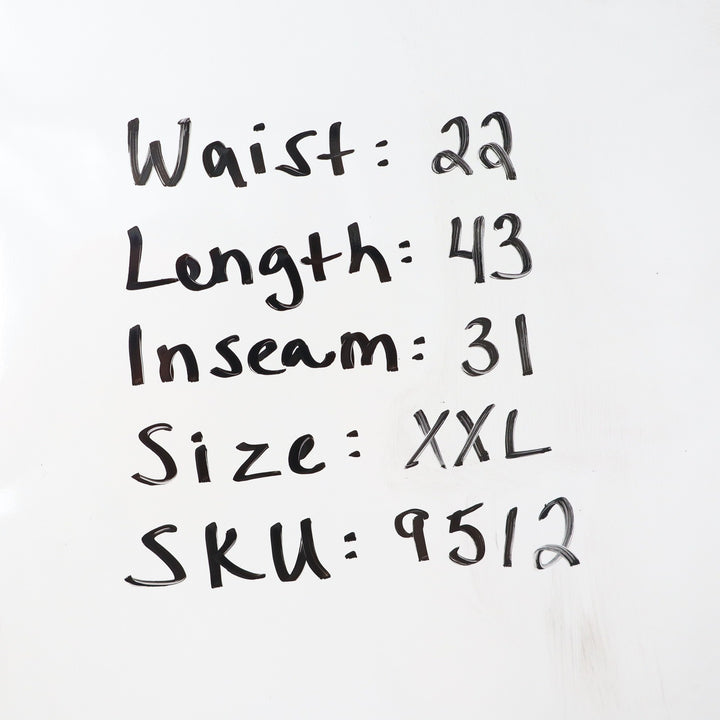 Waist: 22
Length: 43
Inseam: 31
Size: XXL
SKU: 9512